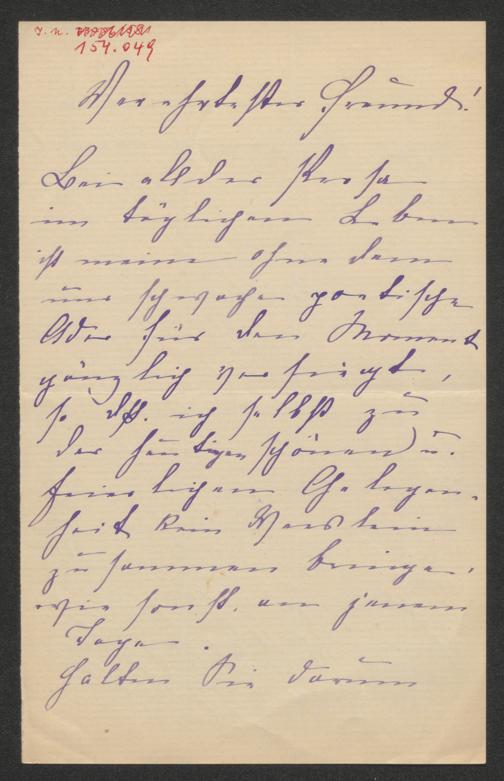 J. N.
154.049
Verehrtester Freund!
Bei all der Prosa
im täglichen Leben
ist meine ohne dem
nur schwache poetische
Ader für den Moment
gänzlich versiegt,
so dß. ich selbst zu
der heutigen schönen u.
feierlichen Gelegen-
heit kein Verslein
zusammen bringe,
wie sonst, an jenem
Tage.
Halten Sie darum